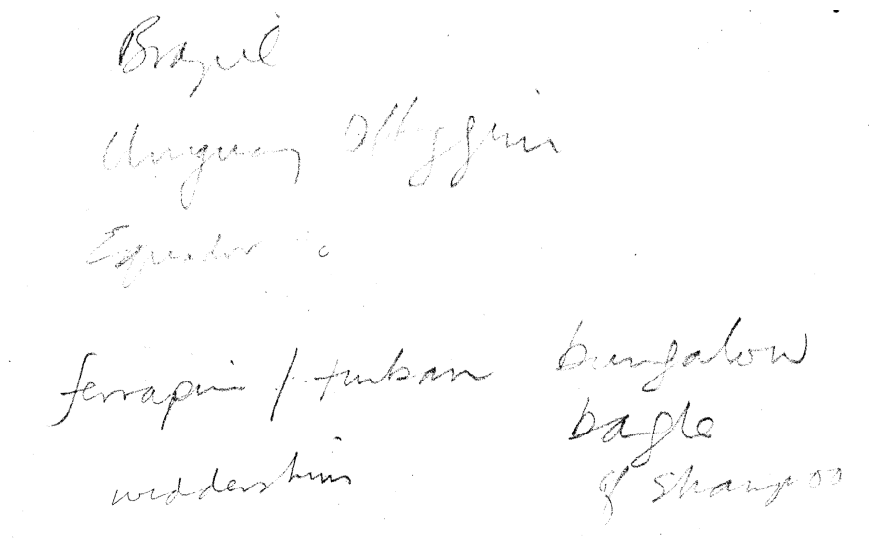 Brazil
Uruguay O'Higgin
Equador
terrapin / turban bungalow
bagle
widdershins of Shampoo